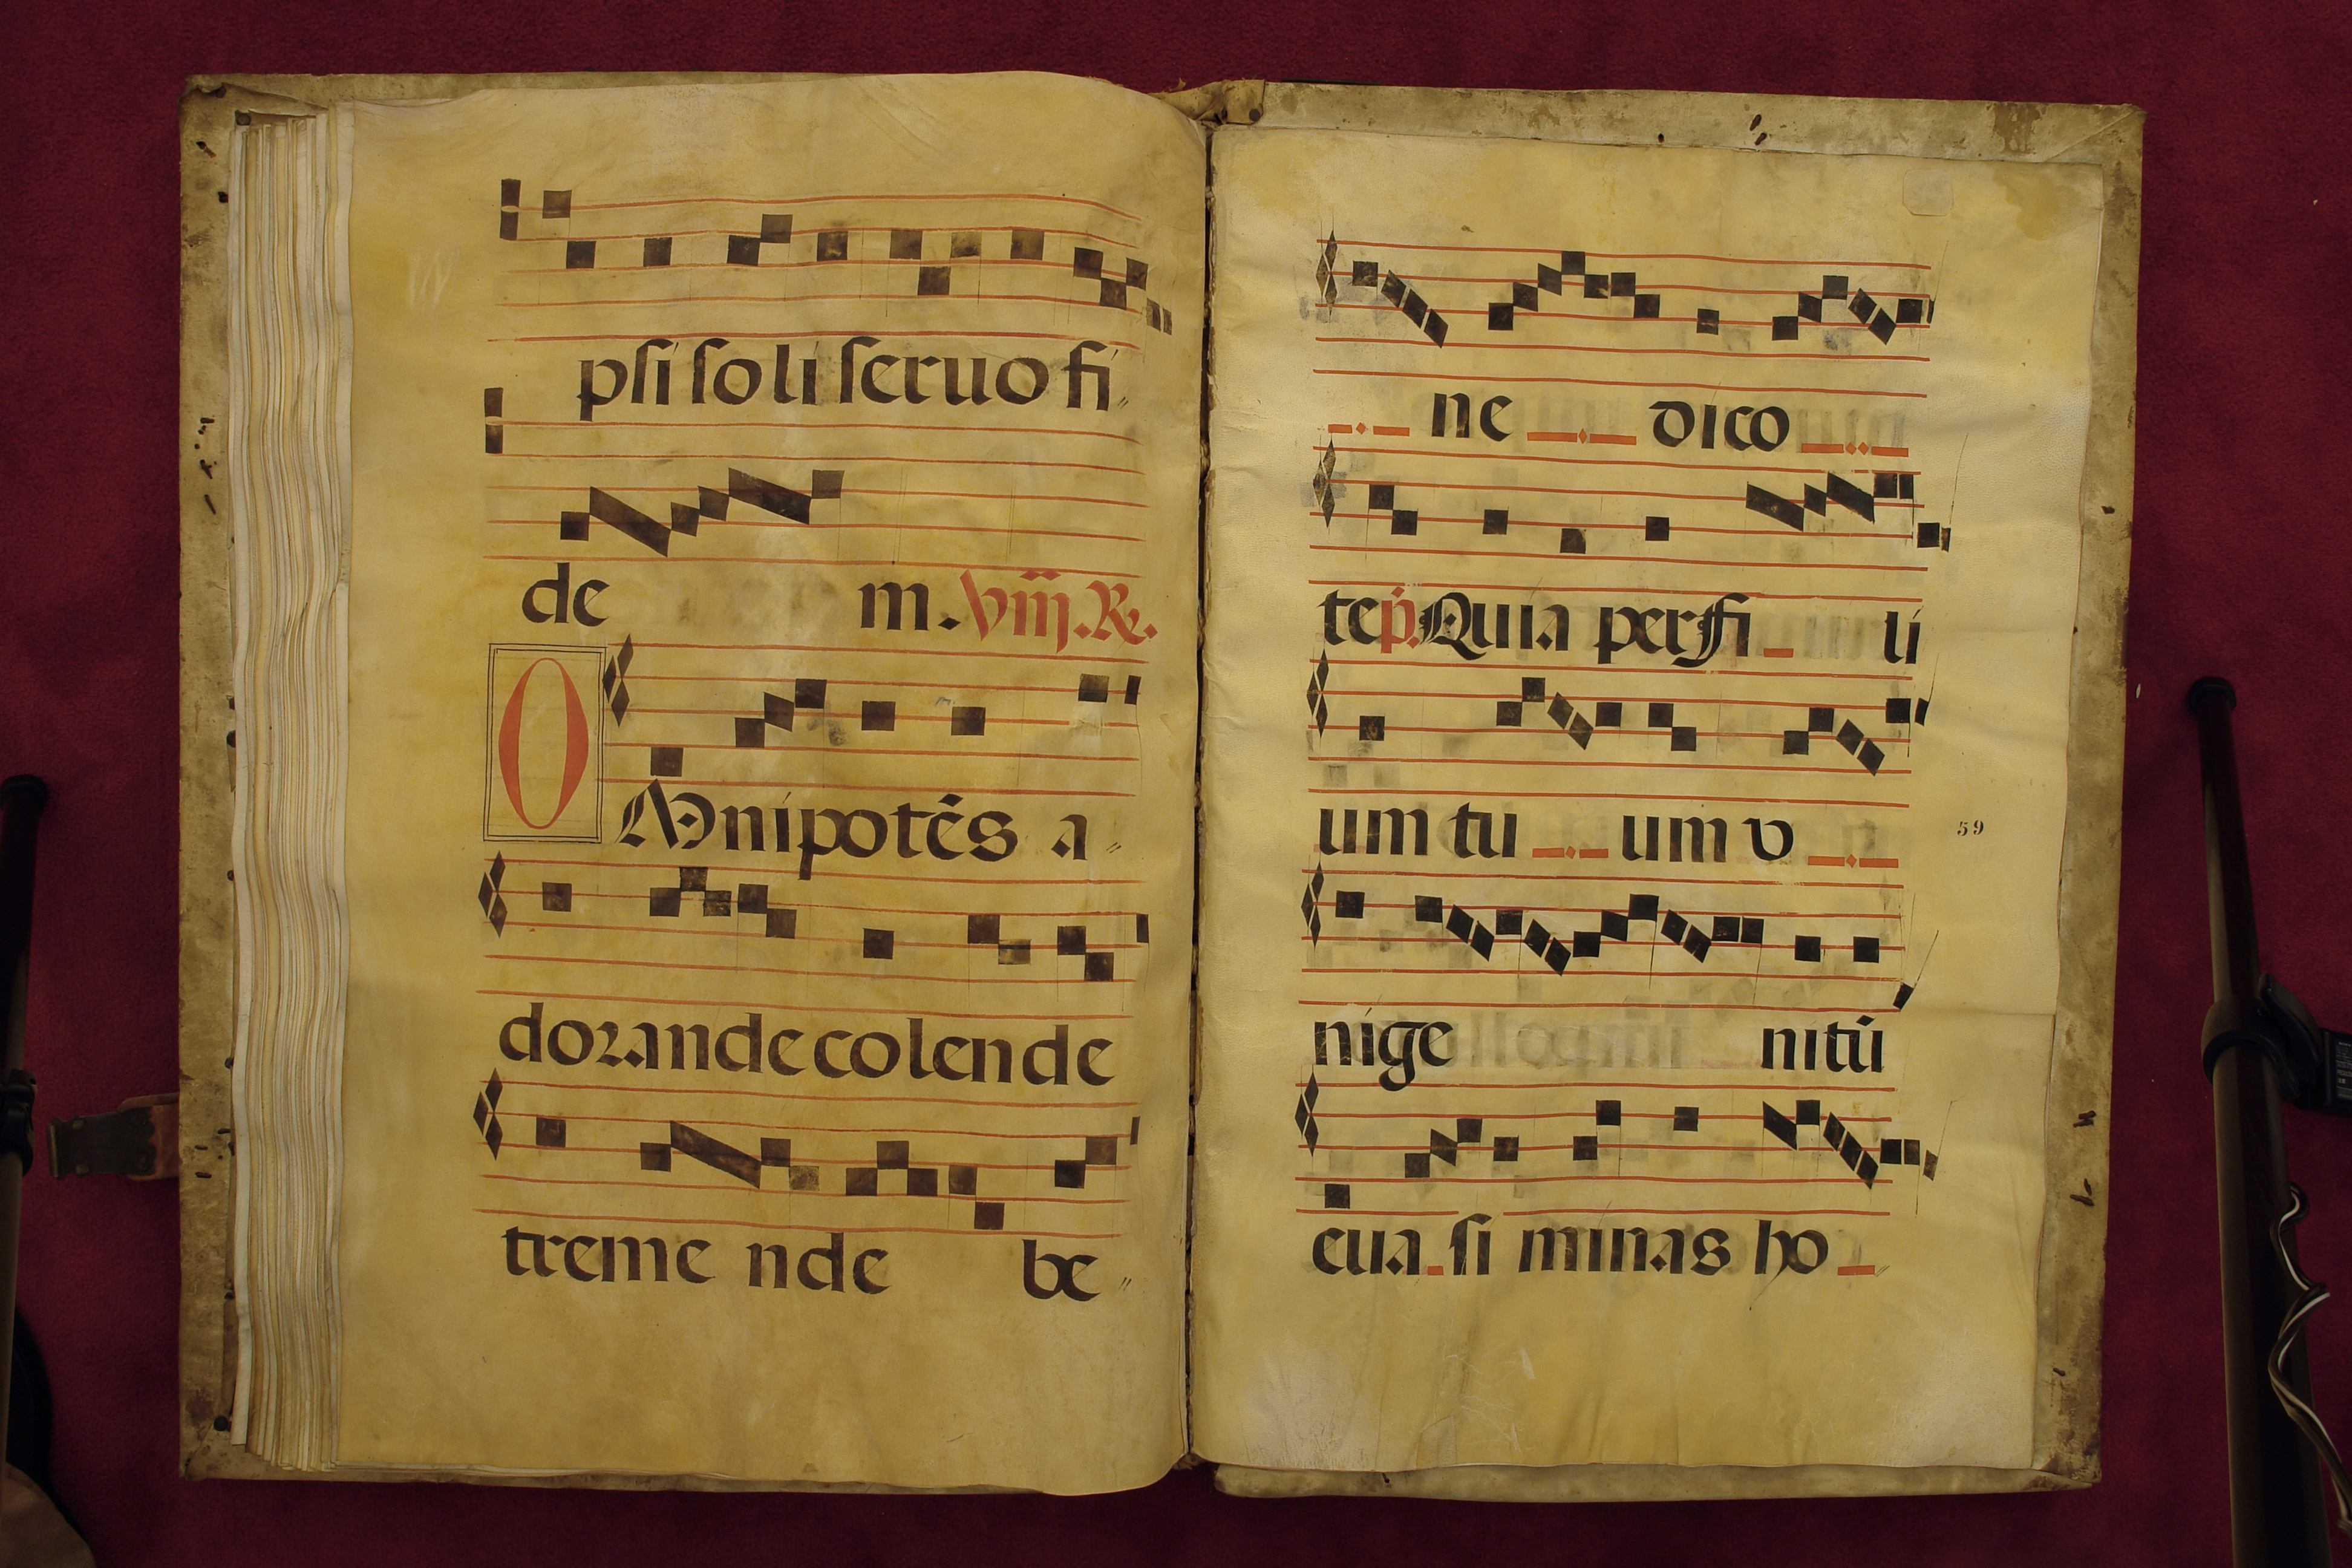 psi soli seruo fi〃
de m. viij. R.
OMnipotēs a〃
dorande colende
treme nde be〃
ne dico
te p̄. Quia per fi li
um tu um v
59
nige nitū
eua si minas ho